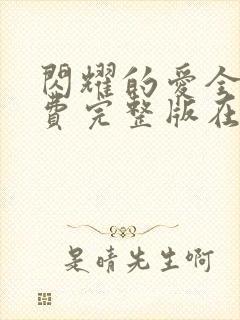 閃耀的愛全
費完整版在
是晴先生啊